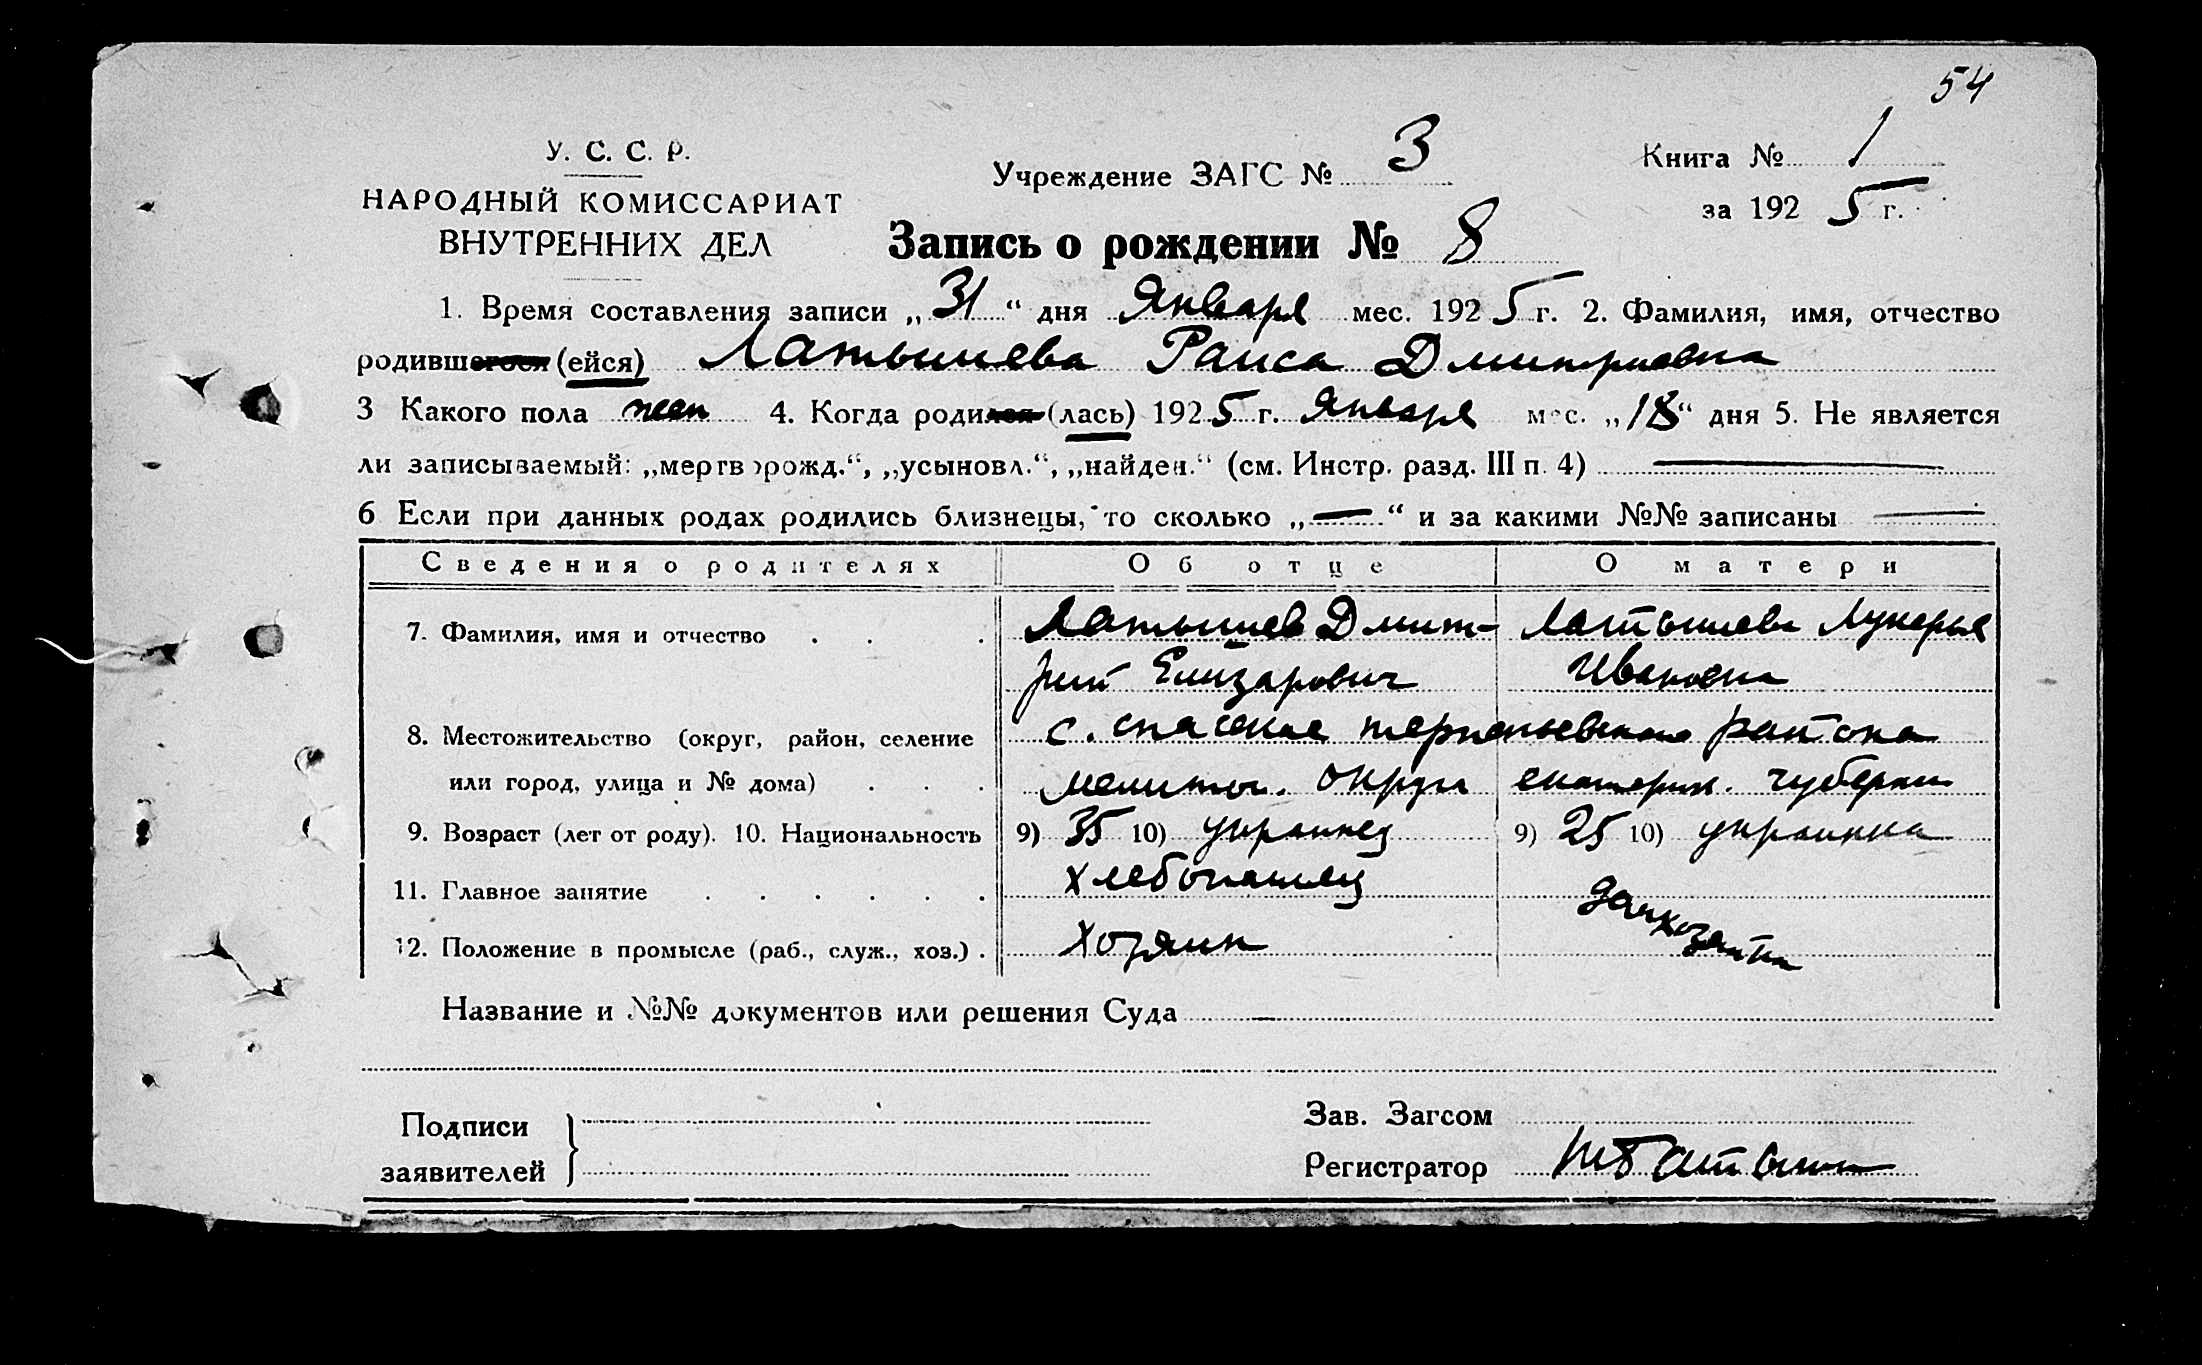 54
У. С. С. Р.
НАРОДНЫЙ КОМИССАРИАТ
ВНУТРЕННИХ ДЕЛ
Учреждение ЗАГС № 3
Книга № 1
за 1925 г.
Запись о рождении № 8
1. Время составления записи „31“ дня Января мес. 1925 г. 2. Фамилия, имя, отчество
родившегося (ейся) Латышева Раиса Дмитриевна
3 Какого пола жен 4. Когда родился (лась) 1925 г. Января мес. „18“ дня 5. Не является
ли записываемый: „мертворожд.“, „усыновл.“, „найден.“ (см. Инстр. разд. III п. 4)
6 Если при данных родах родились близнецы, то сколько „—“ и за какими №№ записаны —
Сведения о родителях Об отце О матери
7. Фамилия, имя и отчество Латышев Дмит- Латышева Лукерья
рий Елизарович Ивановна
8. Местожительство (округ, район, селение с. Спасское терпеньевского района
или город, улица и № дома) мелитоп. округа екатерин. губернии
9. Возраст (лет от роду). 10. Национальность 9) 35 10) украинец 9) 25 10) украинка
11. Главное занятие хлебопашец домхозяйка
12. Положение в промысле (раб., служ., хоз.) хозяин
Название и №№ документов или решения Суда —
Подписи
заявителей
Зав. Загсом
Регистратор